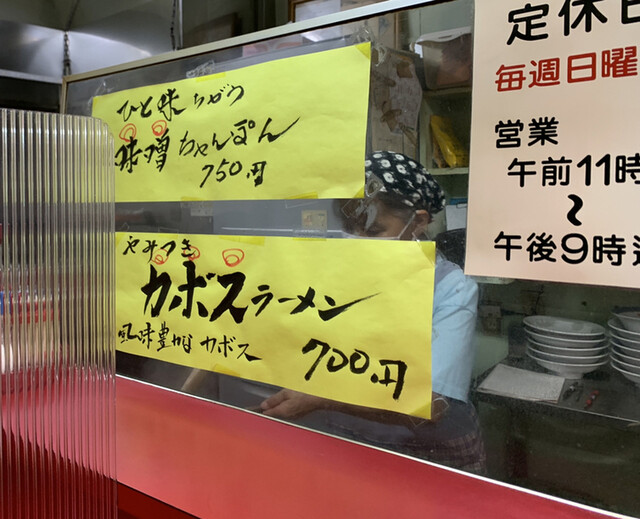 ひと味ちがう
味噌ちゃんぽん
750円
やみつき
カボスラーメン
風味豊かなカボス
700円
定休日
毎週日曜
営業
午前11時
~
午後9時